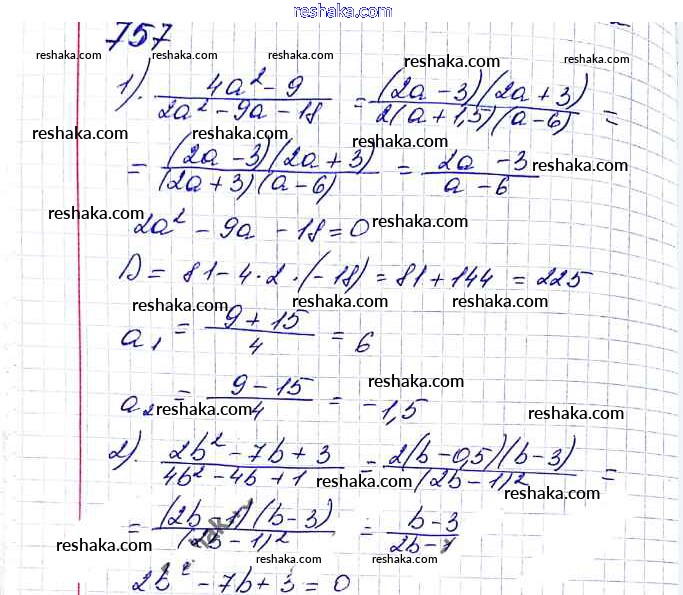 reshaka.com
757
reshaka.com reshaka.com
reshaka.com
1). (4a² - 9)/(2a² - 9a - 18) = ((2a - 3)(2a + 3))/(2(a + 1,5)(a - 6)) =
reshaka.com reshaka.com reshaka.com
= ((2a - 3)(2a + 3))/((2a + 3)(a - 6)) = (2a - 3)/(a - 6)
reshaka.com
reshaka.com reshaka.com
2a² - 9a - 18 = 0
reshaka.com reshaka.com
D = 81 - 4·2·(-18) = 81 + 144 = 225
reshaka.com reshaka.com reshaka.com
a₁ = (9 + 15)/4 = 6
a₂ = (9 - 15)/4 = -1,5
reshaka.com
reshaka.com reshaka.com
2). (2b² - 7b + 3)/(4b² - 4b + 1) = (2(b - 0,5)(b - 3))/((2b - 1)²) =
reshaka.com reshaka.com reshaka.com
= ((2b - 1)(b - 3))/((2b - 1)²) = (b - 3)/(2b - 1)
reshaka.com
reshaka.com reshaka.com
2b² - 7b + 3 = 0